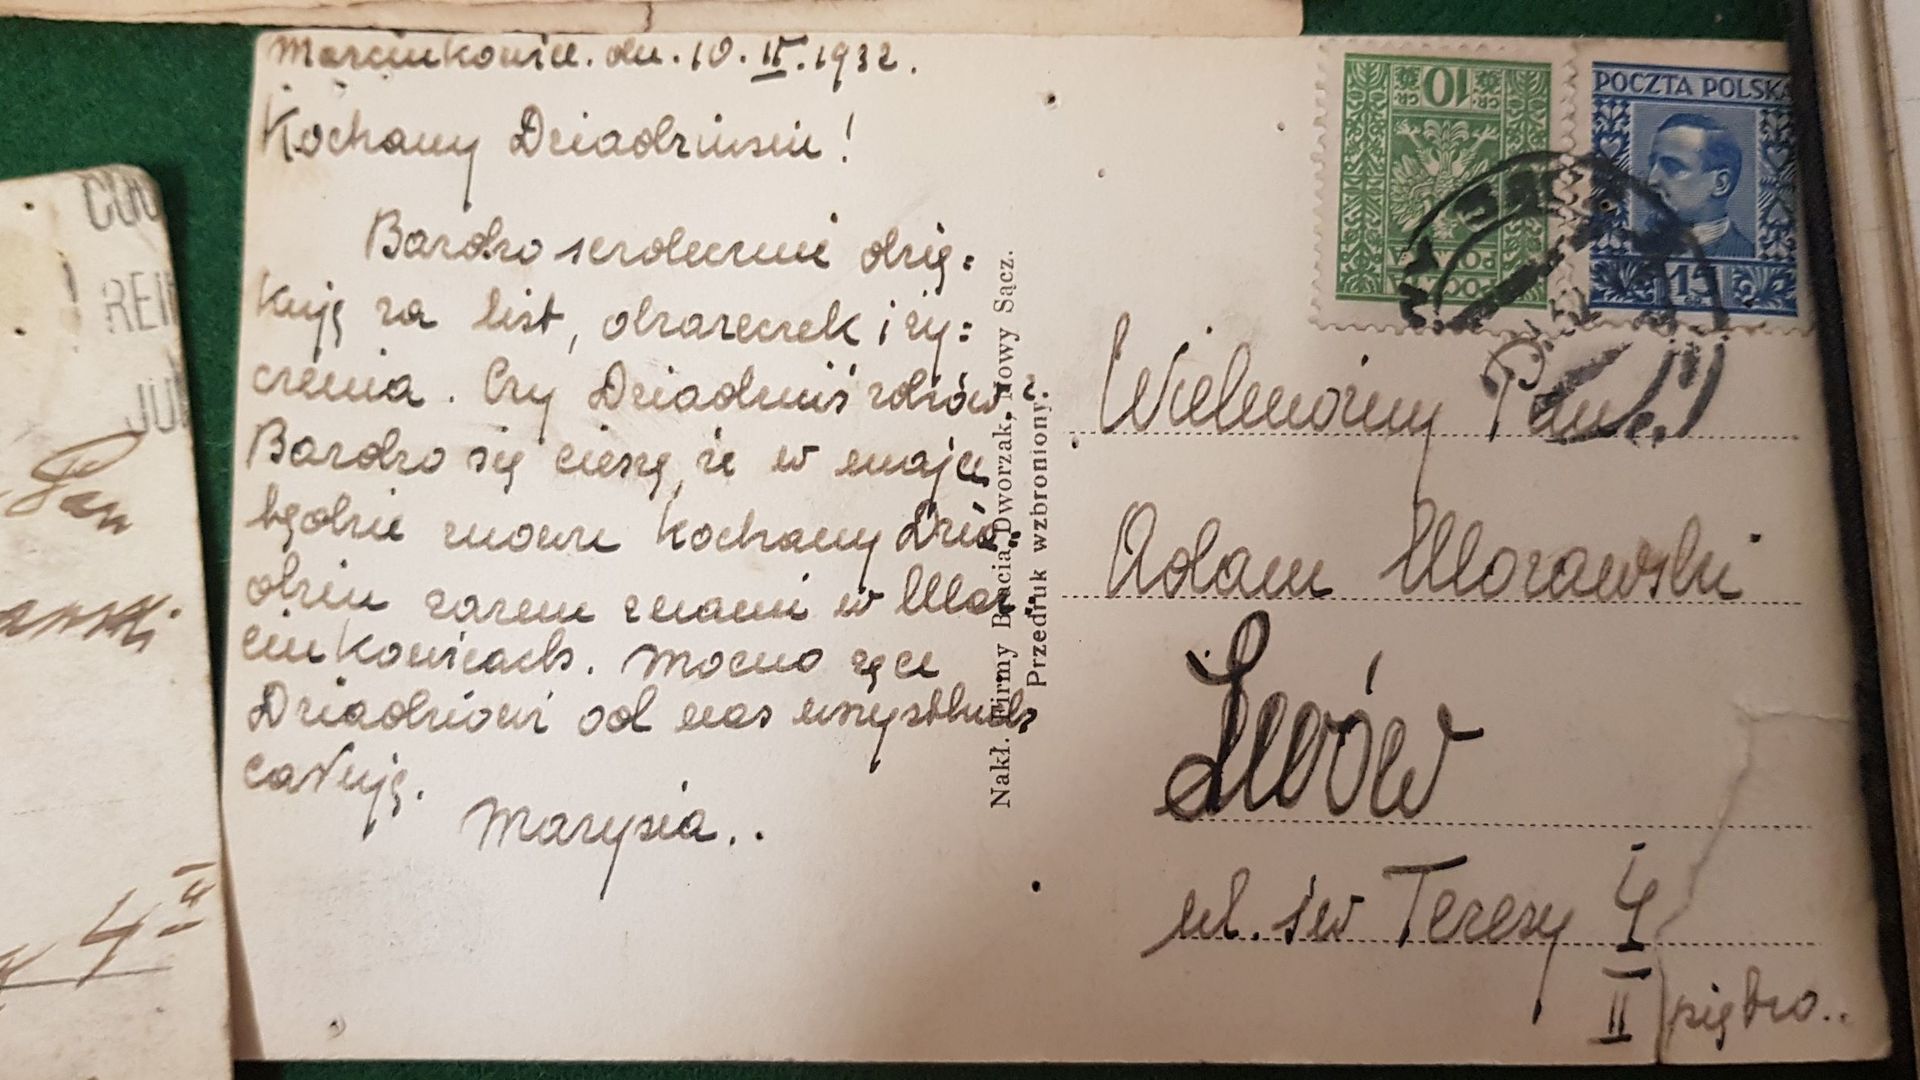 Marcinkowice. dn. 10. II. 1932.
Kochany Dziadziusiu!
Bardzo serdecznie dzię=
kuję za list, obrazeczek i ży=
czenia. Czy Dziadziuś zdrów?
Bardzo się cieszę, że w maju
będzie znowu Kochany Dzia=
dziu razem z nami w Mar=
cinkowicach. Mocno ręce
Dziadziowi od nas wszystkich
całuję.
Marysia..
Nakł. Firmy Bracia Dworzak, Nowy Sącz.
Przedruk wzbroniony.
10
GR GR
POCZTA
POLSKA
POCZTA POLSKA
15
Wielmożny Pan
Adam Morawski
Lwów
ul. św Teresy 4
II piętro..
REI
Pan
4